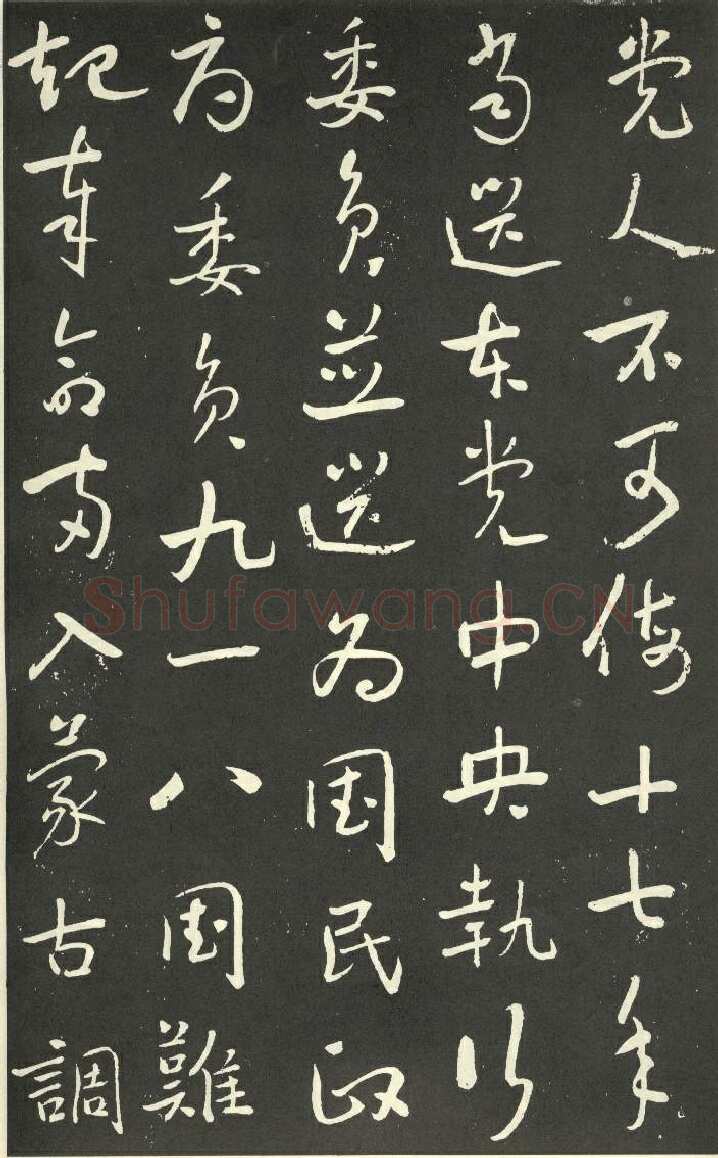 党人不可侮十七年
當選本党中央執行
委員並選為國民政
府委員九一八國難
起奉命兩入蒙古調
Shufawang.CN